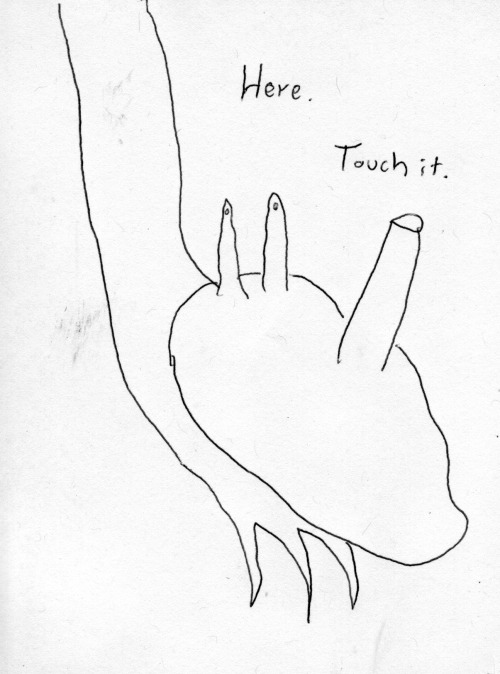 Here.
Touch it.